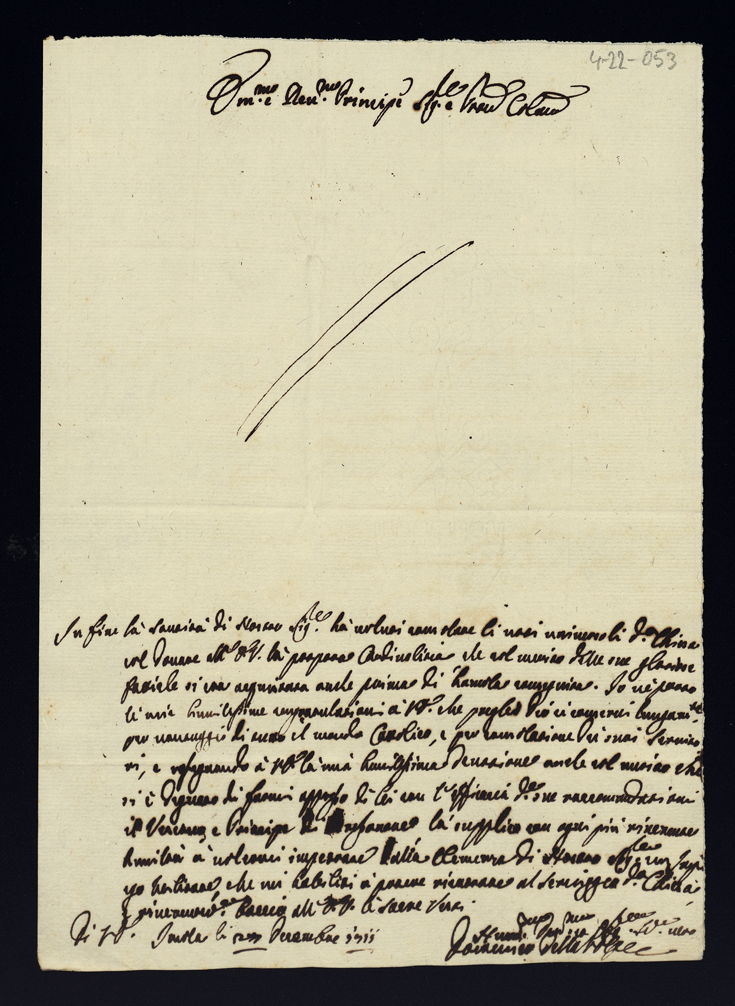 4-22-053
Em.mo e Rev.mo Principe Sig.re Pron Colmo
In fine la Santità di Nostro Sig.re hà voluto consolare li voti universali d.la Chiesa
col donare all' la porpora Cardinalizia che col merito delle sue gloriose
fatiche si era acquistata anche prima di haverla conseguita. Io ne porto
le mie humilissime congratulationi a che prego Dio ci conservi lungam.te
per vantaggio di tutto il mondo Catolico, e per consolatione de suoi servito
ri, e rassegnando à la mia humilissima devotione anche col merito che
si è degnato di farmi appresso di lei con l'efficacia d.le sue raccomandationi
il Vescovo, e Principe di la supplico con ogni più riverente
humiltà à volermi impetrare dalla Clemenza di Nostro Sig.re
che mi habiliti à potere ritornare al servizio d.la Chiesa
e bacio all' le Sacre Vesti.
Di Imola li Decembre
Domenico della Volpe